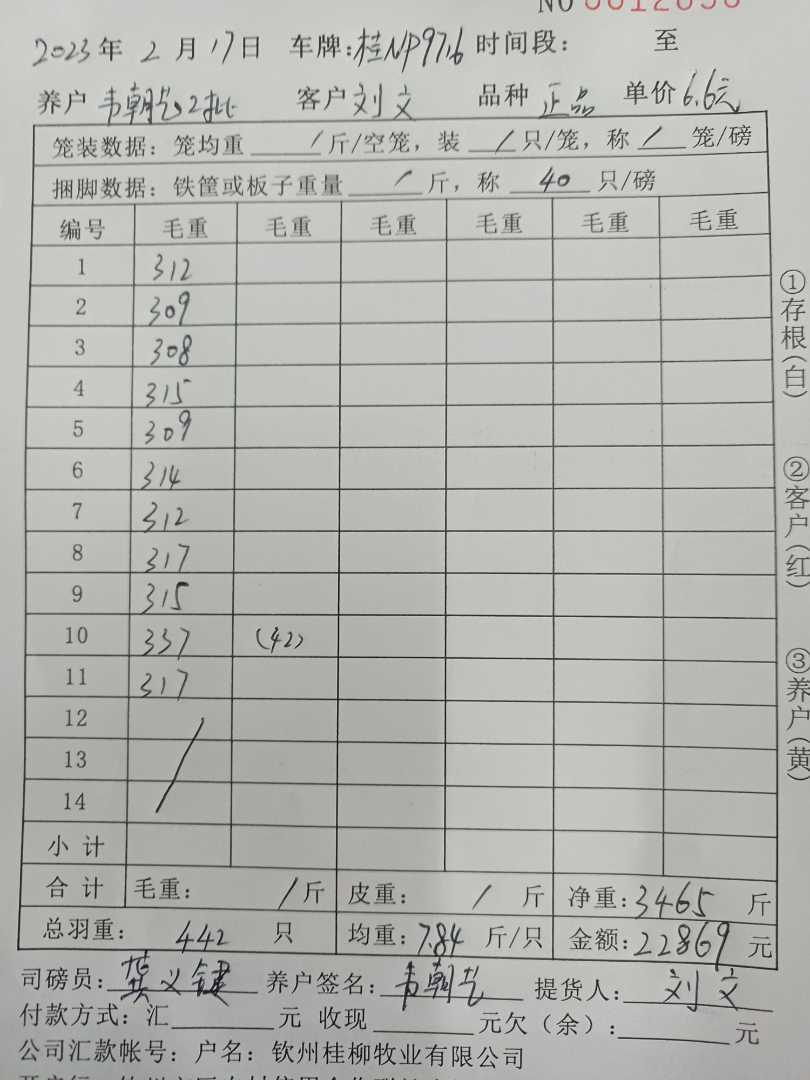 NO 0012696
2023年 2月17日 车牌:桂NP9716 时间段: 至
养户 韦朝艺2批 客户 刘文 品种 正品 单价 6.6元
笼装数据: 笼均重 / 斤/空笼, 装 / 只/笼, 称 / 笼/磅
捆脚数据: 铁筐或板子重量 / 斤, 称 40 只/磅
编号 毛重 毛重 毛重 毛重 毛重 毛重
1 312
2 309
3 308
4 315
5 309
6 314
7 312
8 317
9 315
10 337 (42)
11 317
12
13
14
小计
合计 毛重: / 斤 皮重: / 斤 净重: 3465 斤
总羽重: 442 只 均重: 7.84 斤/只 金额: 22869 元
司磅员: 龚义键 养户签名: 韦朝艺 提货人: 刘文
付款方式: 汇 元 收现 元欠(余): 元
公司汇款帐号: 户名: 钦州桂柳牧业有限公司
①存根(白) ②客户(红) ③养户(黄)